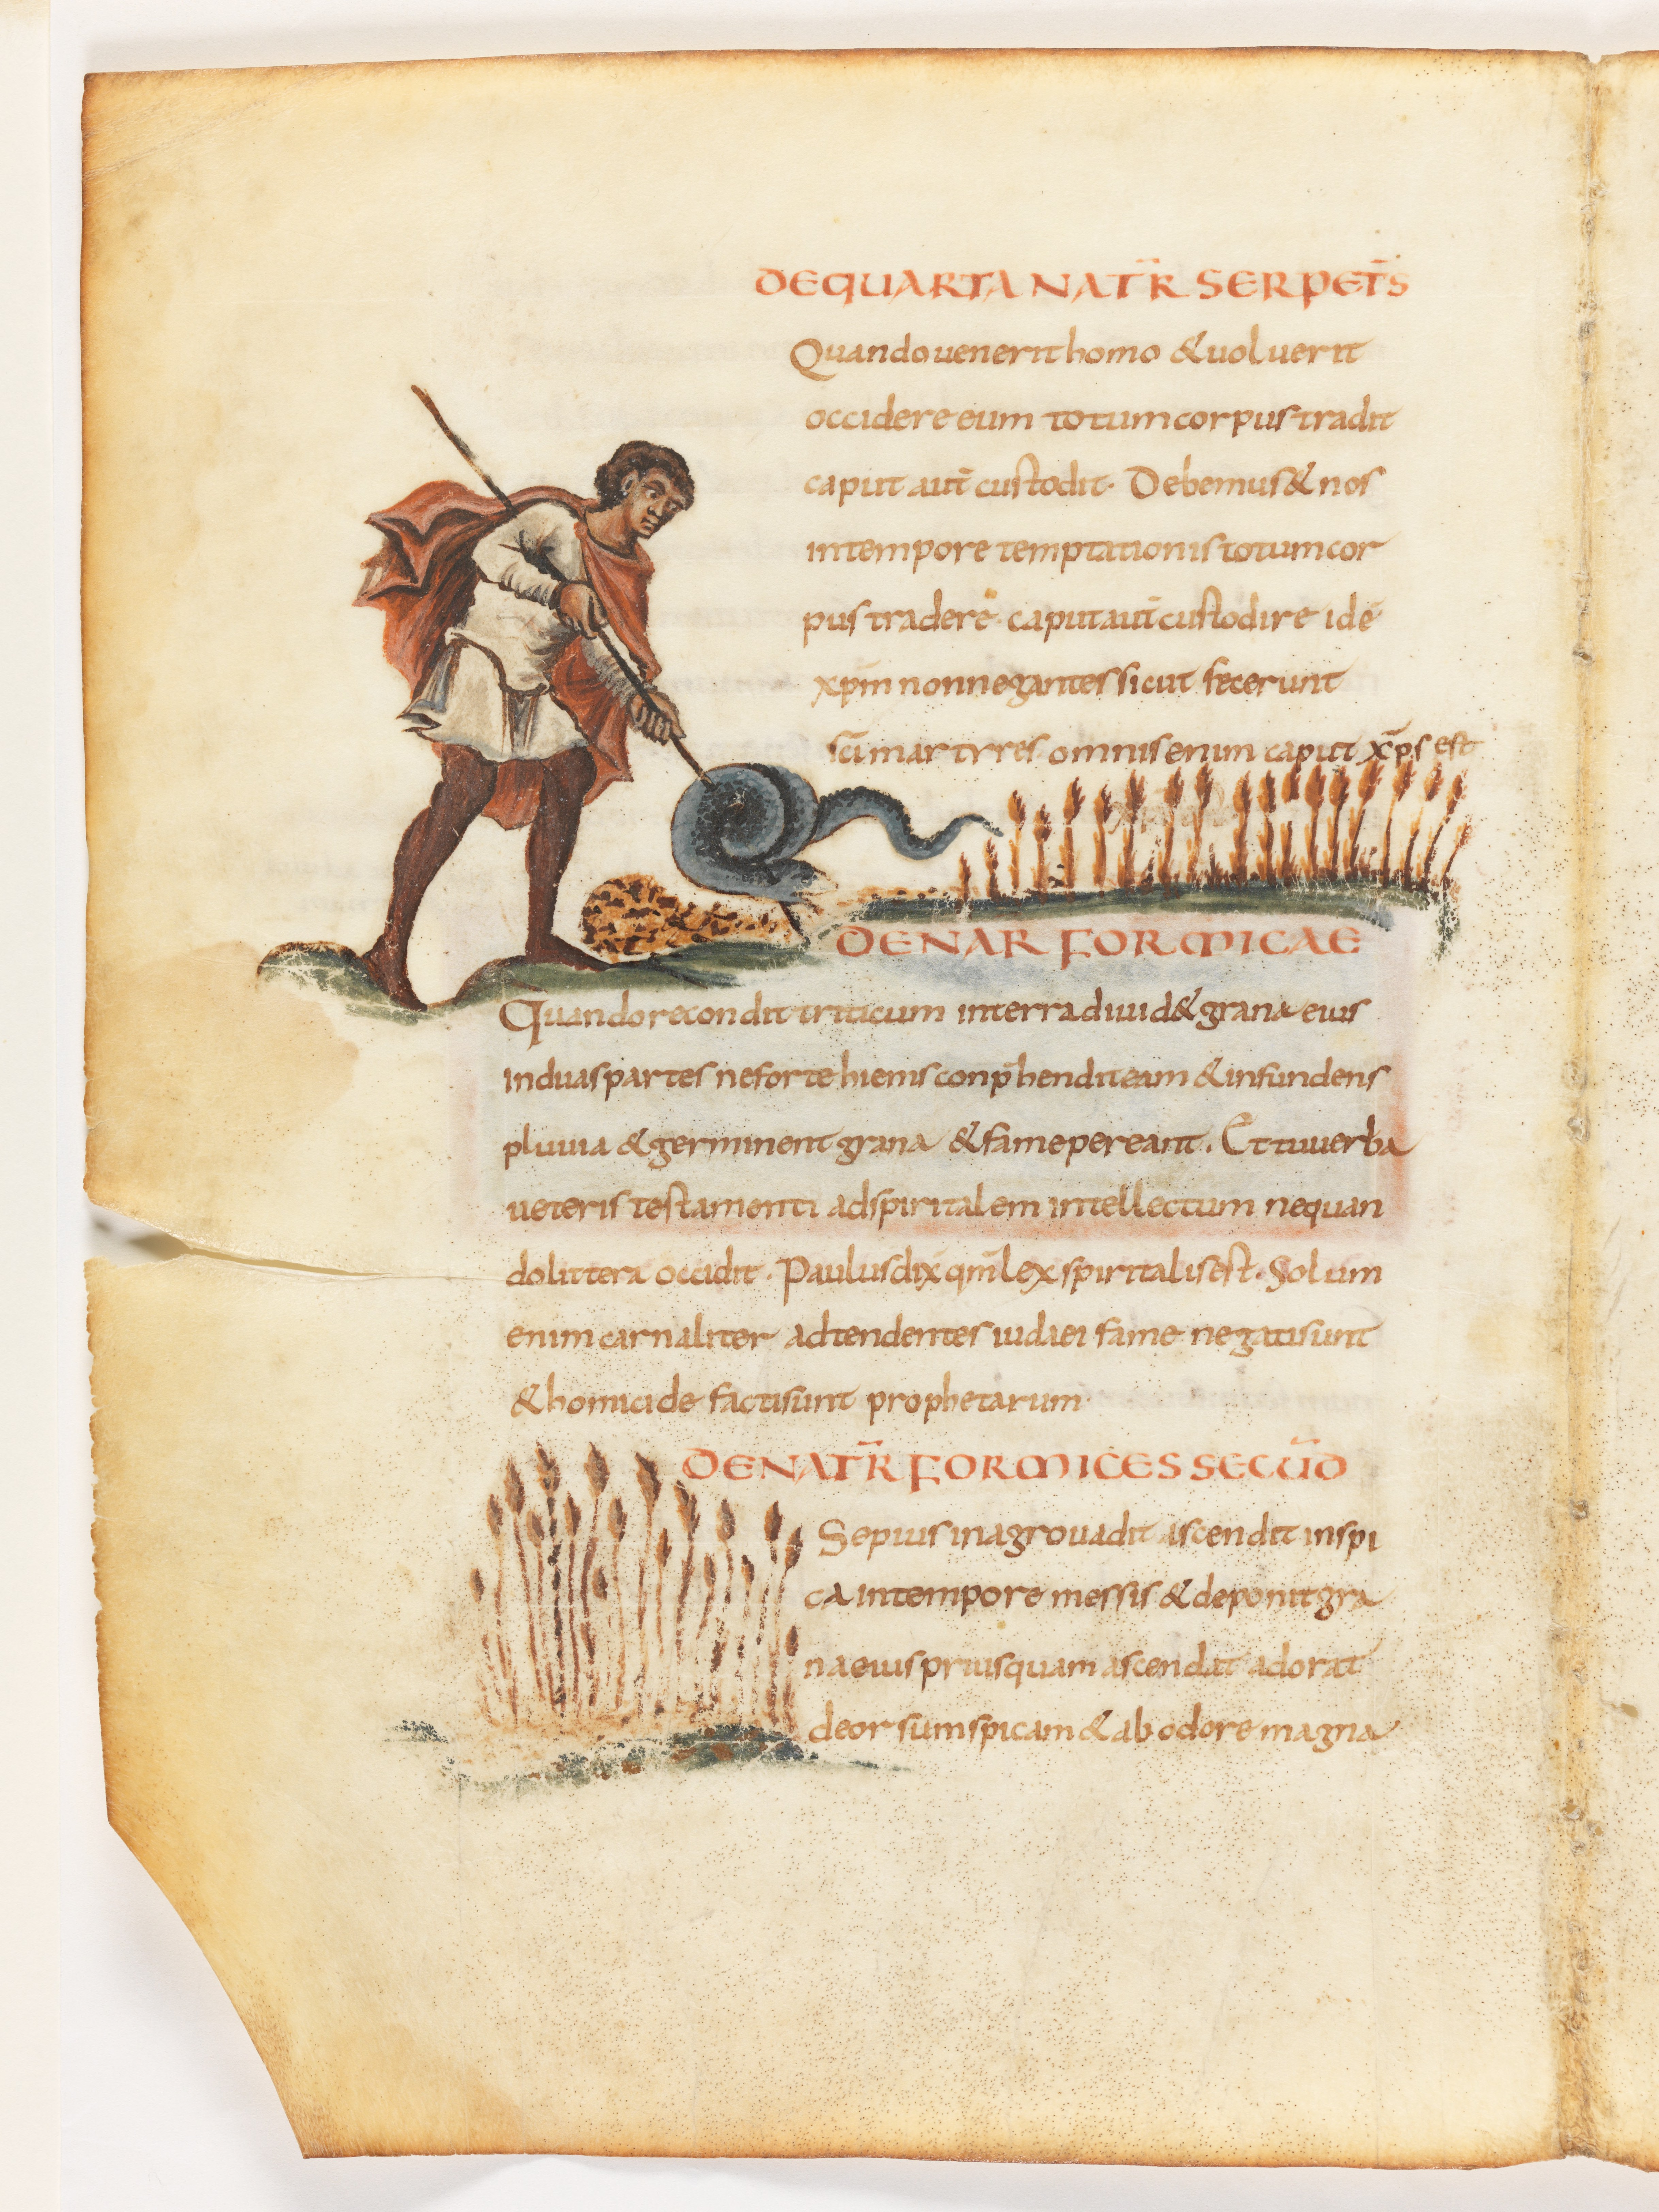 DE QUARTA NAT̄R SERPET̄S
Quando uenerit homo & uoluerit
occidere eum totum corpus tradit
caput aut̄ custodit· Debemus & nos
in tempore temptationis totum cor
pus tradere· caput aut̄ custodire idē
xp̄m non negantes sicut fecerunt
sc̄i martyres omnis enim caput x̄ps est
DE NAR FORMICAE
Quando recondit triticum in terra diuid& grana eius
in duas partes ne forte hiems conp̄hendit eam & infundens
pluuia & germinent grana & fame pereant. Et tu uerba
ueteris testamenti ad spiritalem intellectum ne quan
do littera occidit· Paulus dix̄ qm̄ lex spiritalis est· Solum
enim carnaliter adtendentes iudaei fame negati sunt
& homicide facti sunt prophetarum·
DE NAT̄R FORMICES SECUD̄
Sepius in agro uadit ascendit in spi
ca in tempore messis & deponit gra
na eius prius quam ascendat adorat
deorsum spicam & ab odore magna